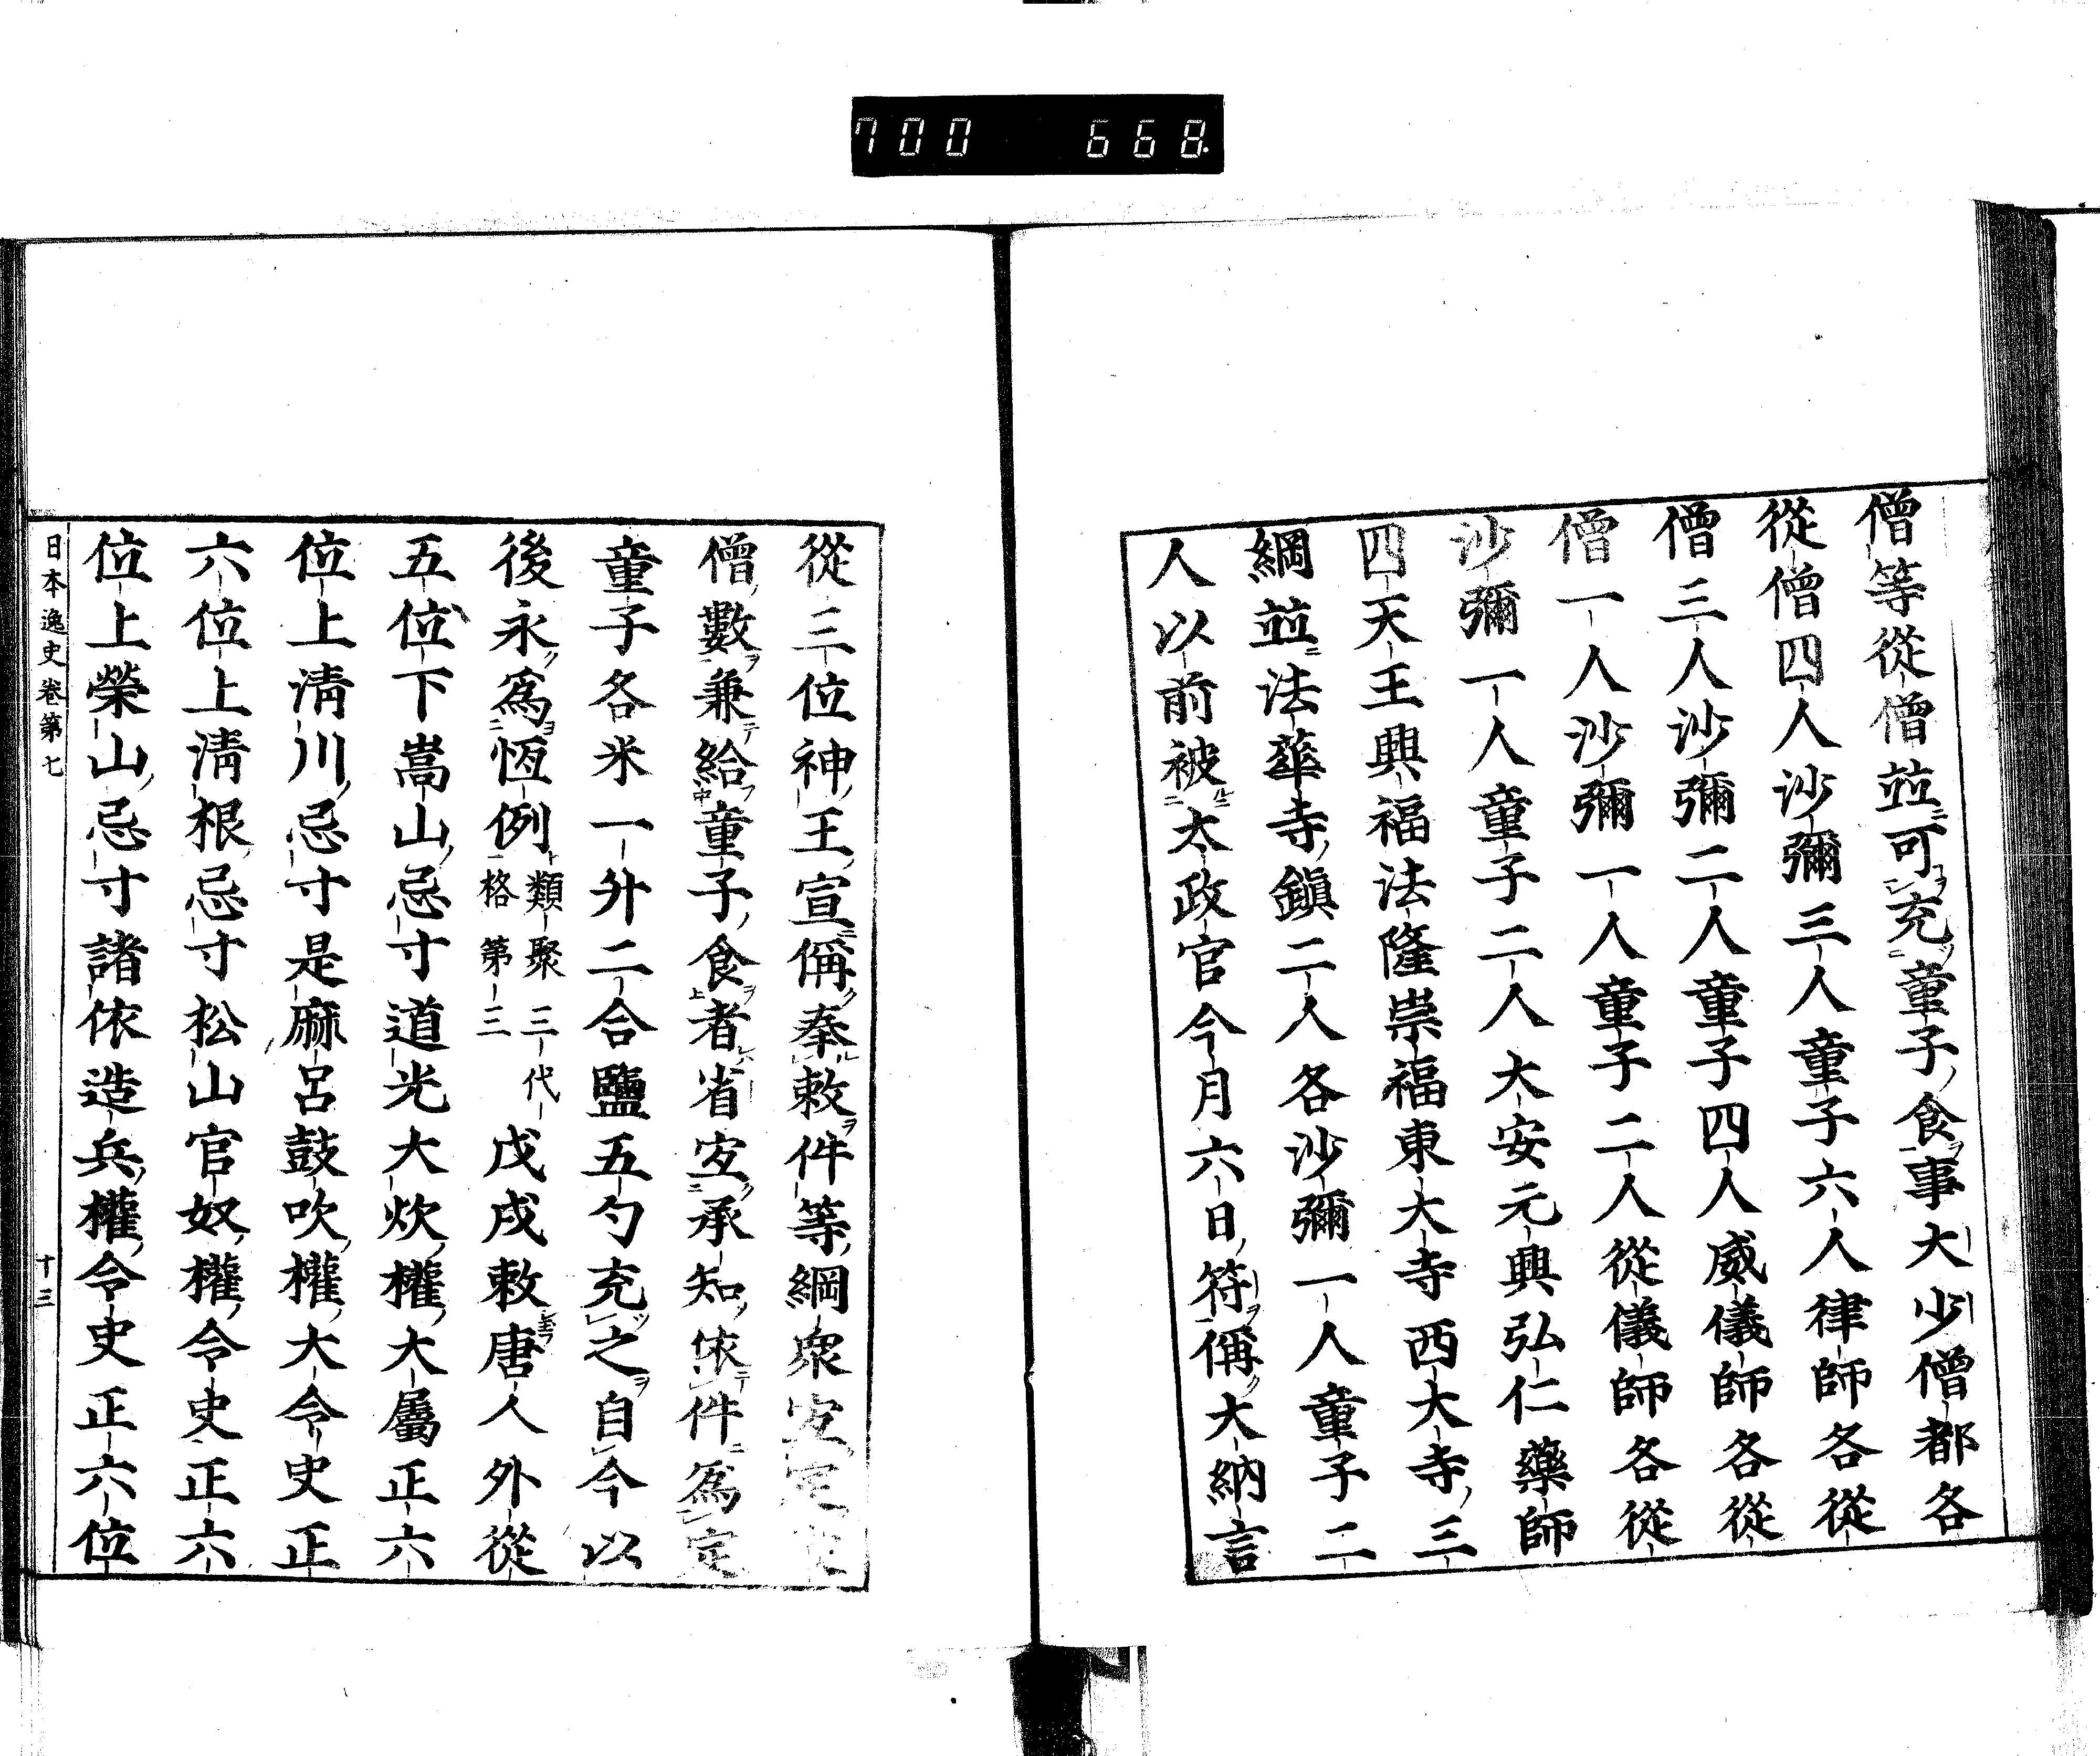 700 668.
僧等從僧並可充童子食事大少僧都各
從僧四人沙彌三人童子六人律師各從
僧三人沙彌二人童子四人威儀師各從
僧一人沙彌一人童子二人從儀師各從
沙彌一人童子二人大安元興弘仁藥師
四天王興福法隆崇福東大寺西大寺三
綱並法華寺鎮二人各沙彌一人童子二
人以前被太政官今月六日符偁大納言
從三位神王宣偁奉敕件等綱衆宐定從
僧數兼給童子食者省宐承知依件爲定
童子各米一升二合鹽五勺充之自今以
後永爲恆例 類聚三代格第三 戊戌敕唐人外從
五位下嵩山忌寸道光大炊權大屬正六
位上清川忌寸是麻呂鼓吹權大令史正
六位上清根忌寸松山官奴權令史正六
位上榮山忌寸諸依造兵權令史正六位
日本逸史卷第七 十三